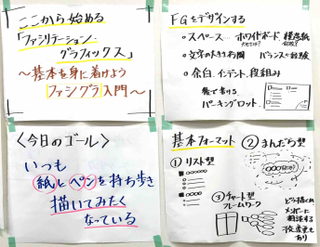 ここから始める
「ファシリテーション・
グラフィックス」
〜基本を身に着けよう
ファシグラ入門〜
FGをデザインする
○スペース…ホワイトボード 模造紙
○文字の大きさ・間 バランスを経験
○余白、インデント、段組み
パーキングロット
<今日のゴール>
いつも
紙とペンを持ち歩き
描いてみたく
なっている
基本フォーマット
①リスト型
②まんだら型
③チャート型
フレームワーク